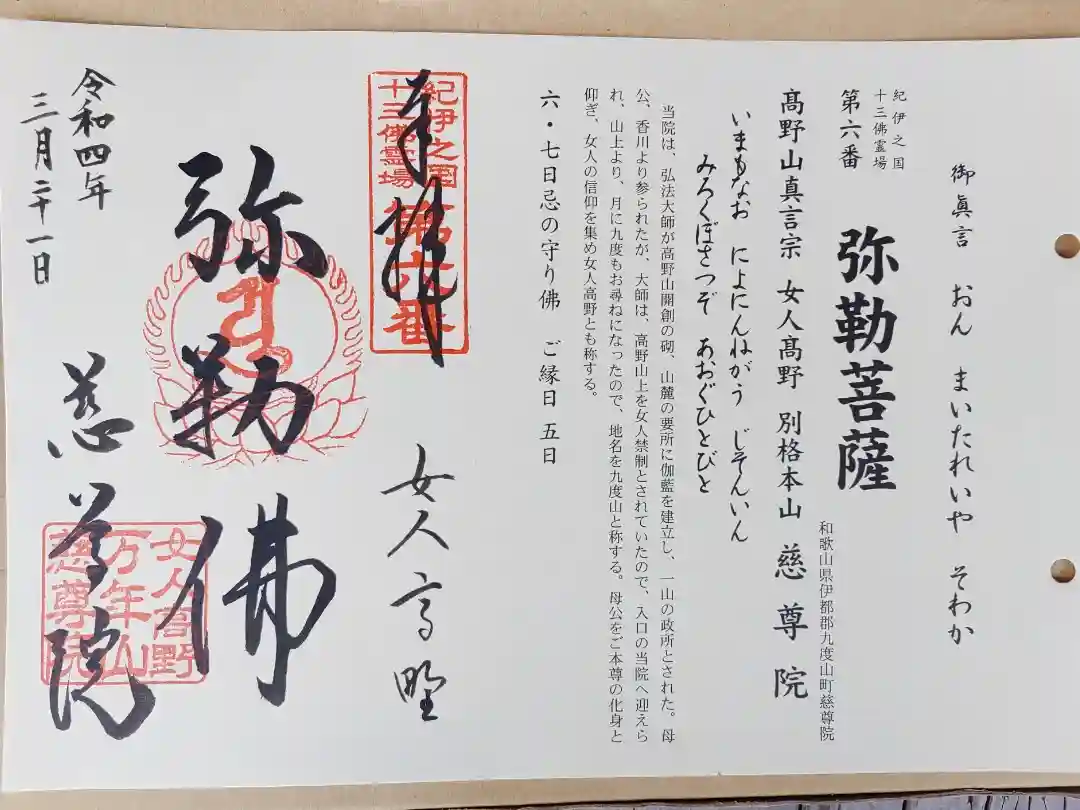 御眞言 おん まいたれいや そわか
紀伊之国
十三佛霊場
第六番 弥勒菩薩
和歌山県伊都郡九度山町慈尊院
髙野山真言宗 女人髙野 別格本山 慈尊院
いまもなお によにんねがう じそんいん
みろくぼさつぞ あおぐひとびと
当院は、弘法大師が高野山開創の砌、山麓の要所に伽藍を建立し、一山の政所とされた。母
公、香川より参られたが、大師は、高野山上を女人禁制とされていたので、入口の当院へ迎えら
れ、山上より、月に九度もお尋ねになったので、地名を九度山と称する。母公をご本尊の化身と
仰ぎ、女人の信仰を集め女人高野とも称する。
六・七日忌の守り佛 ご縁日 五日
奉拝
紀伊之國
十三佛霊場
第六番
女人高野
弥勒佛
慈尊院
女人高野
万年山
慈尊院
令和四年
三月二十一日